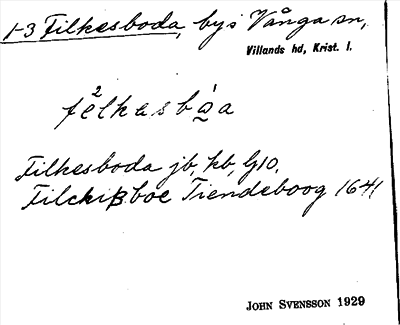 1-3 Filkesboda, bys Vånga sn,
Villands hd, Krist. l.
fe²lkasbo̱`a
Filkesboda jb, kb, G10.
Filckißboe Tiendeboog 1641
JOHN SVENSSON 1929